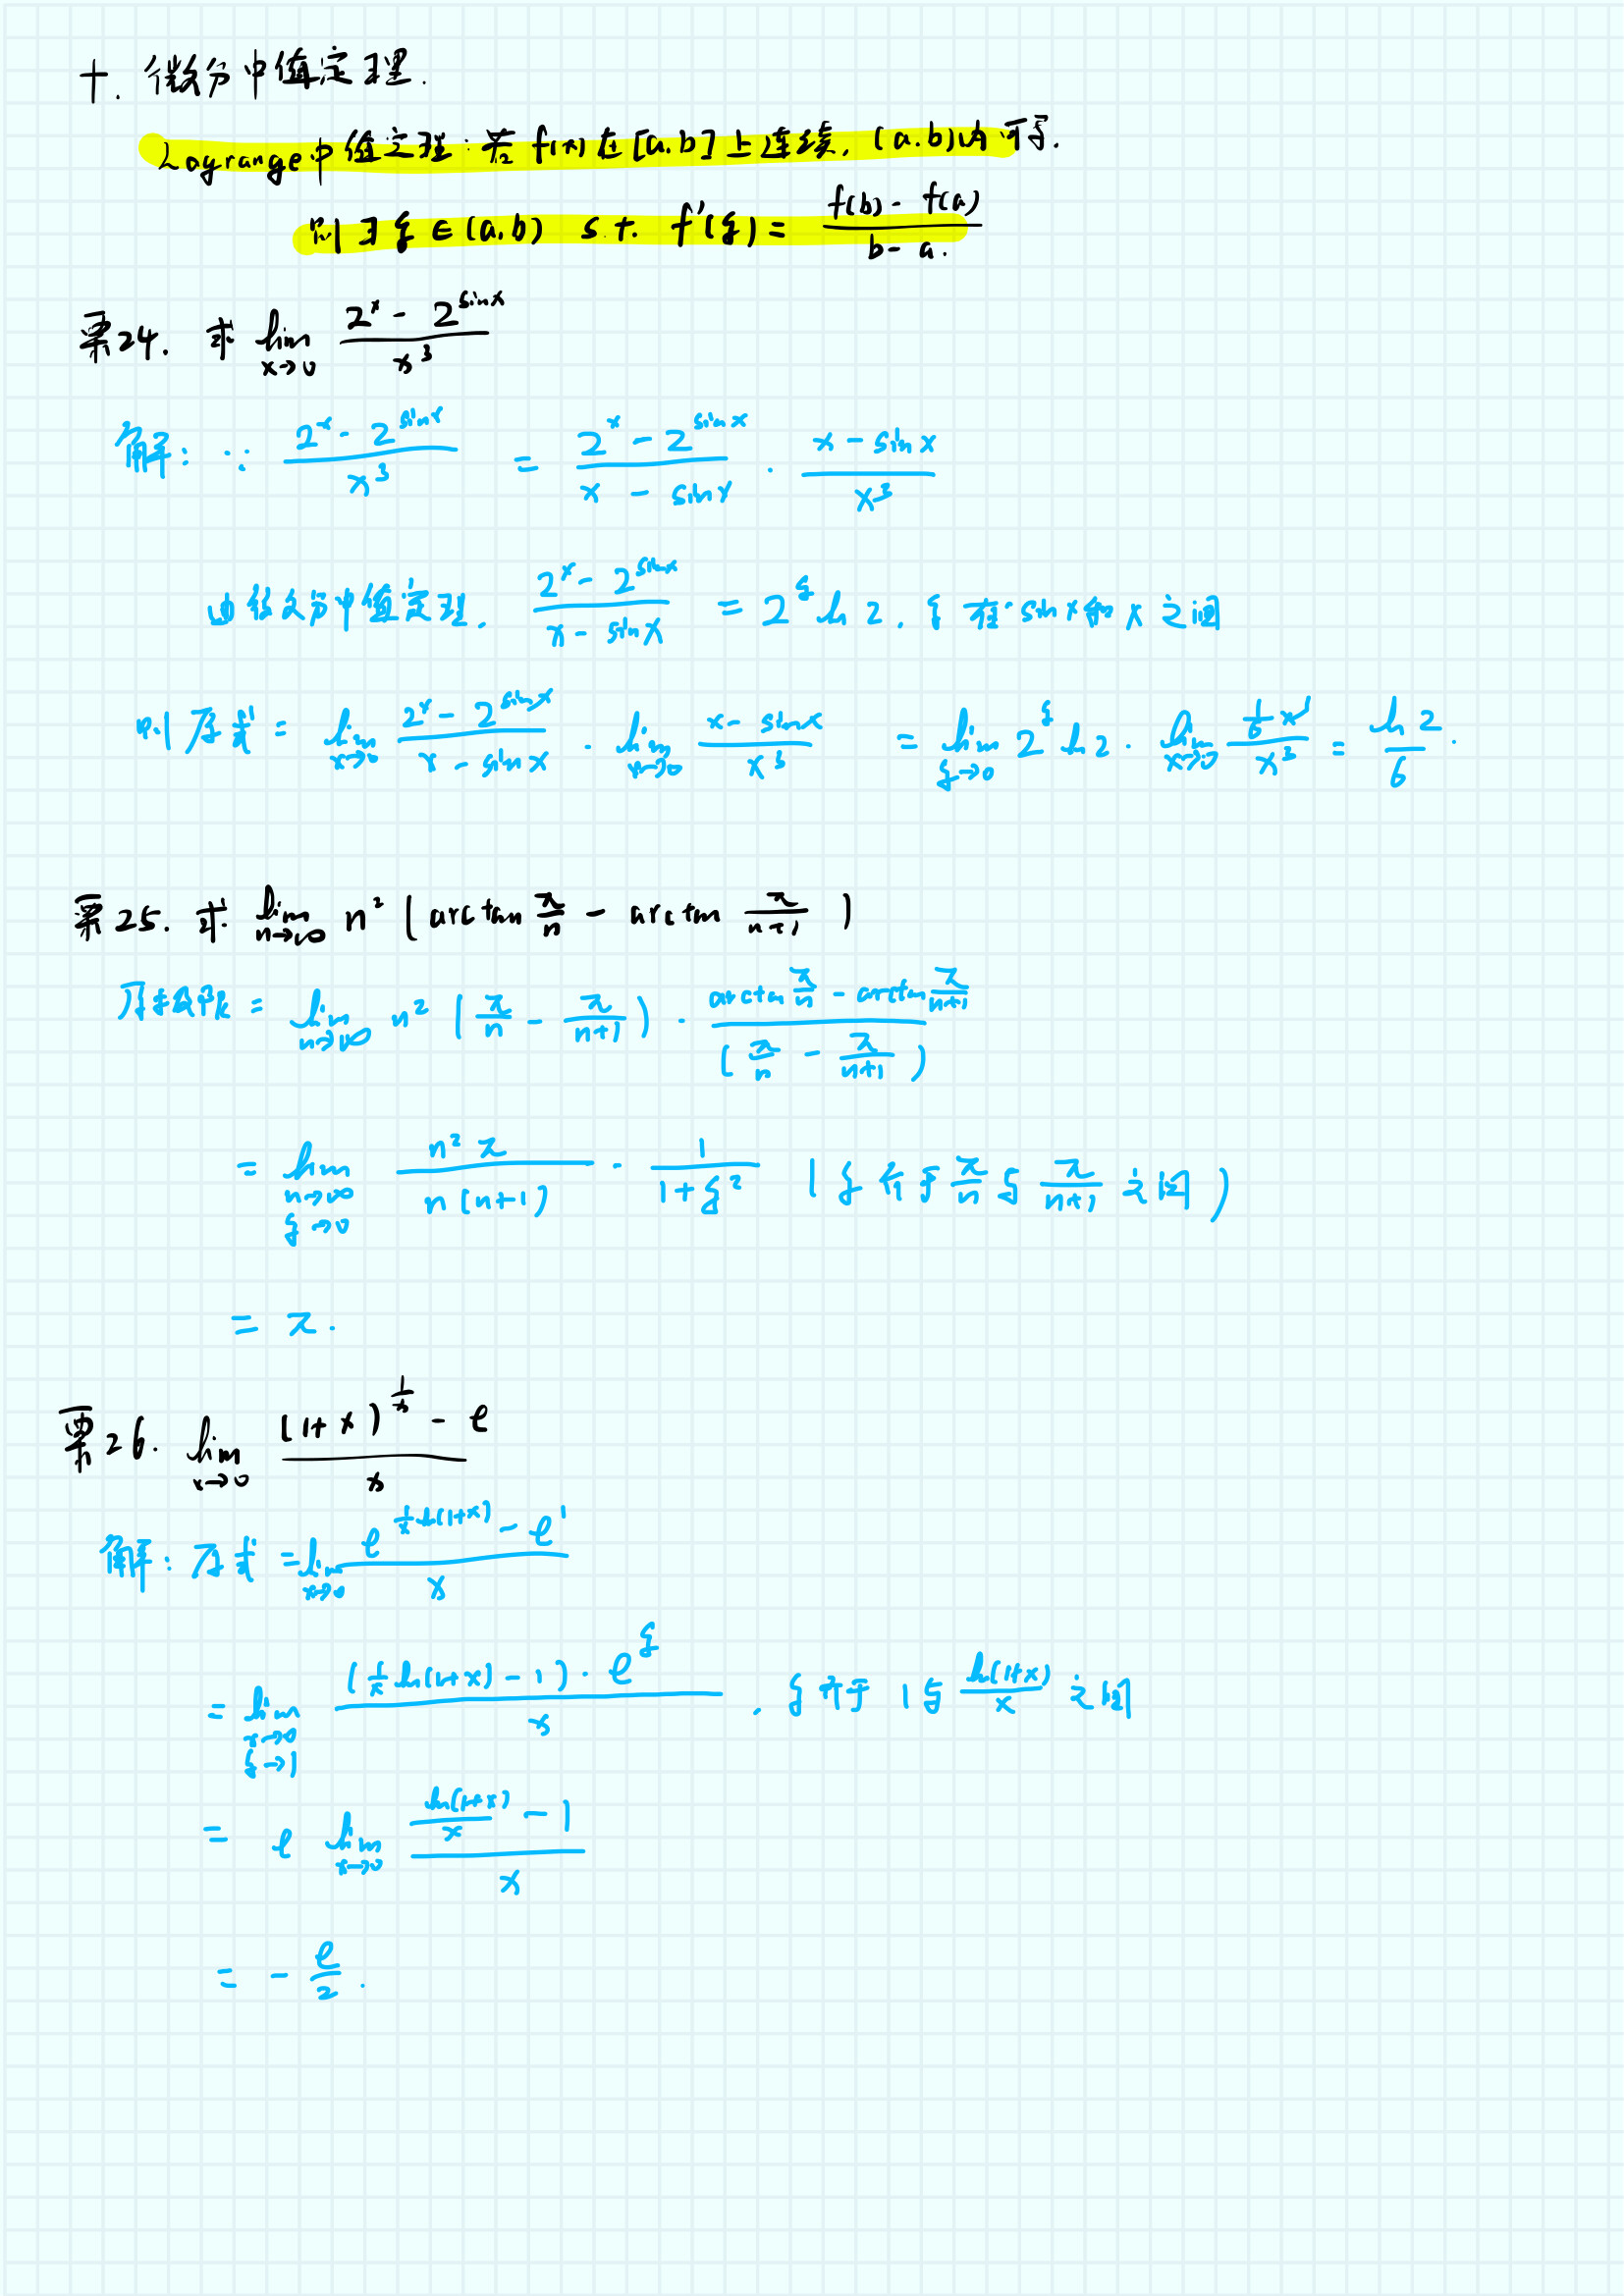 十. 微分中值定理.
Lagrange中值定理: 若 f(x) 在[a.b]上连续, (a.b)内可导.
则 ∃ ξ ∈ (a,b) s.t. f'(ξ) = (f(b) - f(a))/(b - a).
栗24. 求 lim_{x→0} (2^x - 2^{sin x})/x^3
解: ∵ (2^x - 2^{sin x})/x^3 = (2^x - 2^{sin x})/(x - sin x) · (x - sin x)/x^3
由微分中值定理. (2^x - 2^{sin x})/(x - sin x) = 2^ξ ln 2. ξ 在 sin x 和 x 之间
则 原式 = lim_{x→0} (2^x - 2^{sin x})/(x - sin x) · lim_{x→0} (x - sin x)/x^3 = lim_{ξ→0} 2^ξ ln 2 · lim_{x→0} (1/6 x^3)/x^3 = ln 2/6.
栗25. 求 lim_{n→∞} n^2 (arctan π/n - arctan π/(n+1))
原极限 = lim_{n→∞} n^2 (π/n - π/(n+1)) · (arctan π/n - arctan π/(n+1))/(π/n - π/(n+1))
= lim_{n→∞, ξ→0} n^2 π/(n(n+1)) · 1/(1+ξ^2) (ξ 介于 π/n 与 π/(n+1) 之间)
= π.
栗26. lim_{x→0} ((1+x)^{1/x} - e)/x
解: 原式 = lim_{x→0} (e^{1/x ln(1+x)} - e^1)/x
= lim_{x→0, ξ→1} ((1/x ln(1+x) - 1) · e^ξ)/x . ξ介于 1与 ln(1+x)/x 之间
= e lim_{x→0} (ln(1+x)/x - 1)/x
= - e/2.